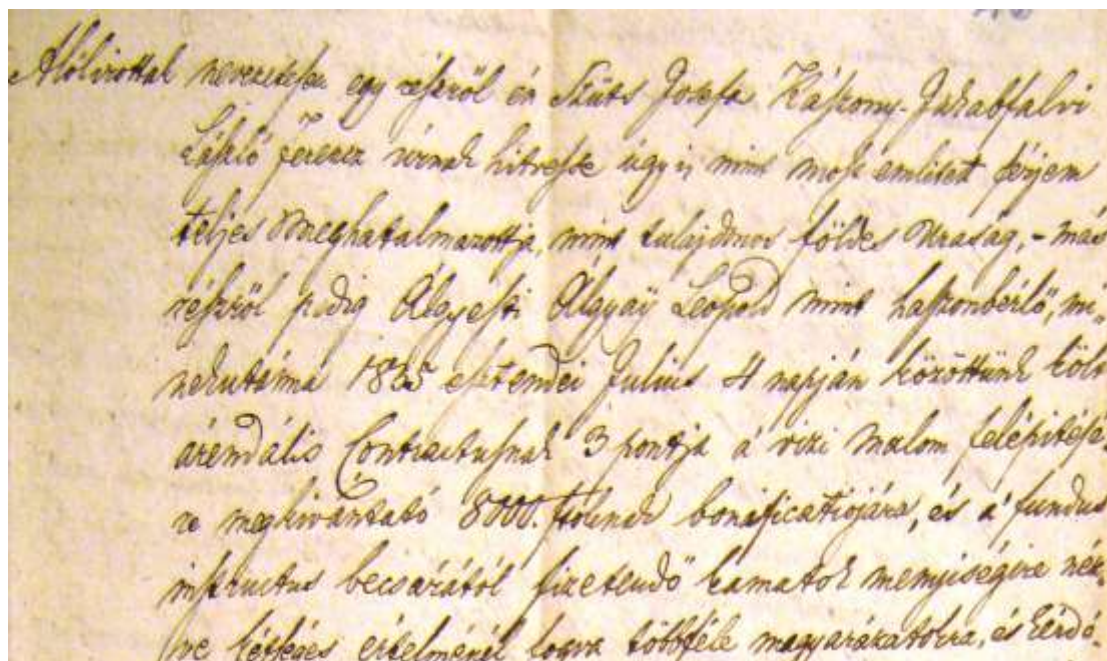 Alólirottak nevezetesen egy részről én Szüts Josefa Kászony-Jakabfalvi
László Ferencz úrnak hitvesse úgy is mint most emlitett férjem
tellyes meghatalmazottja, mint tulajdonos földes Uraság, - más
részről pedig Álgyesti Álgyaÿ Leopold mint haszonbérlő, mi„
nekutánna esztendei Julius 4 napján közöttünk költ
árendális Contractusnak 3 pontja á vizi malom felépitésé„
re megkivántató 8000. ftoknak bonificatiojára, és á fundus
instructus becsárától fizetendő kamatok menyiségire néz„
ve kétséges értelménél fogva többféle magyarázatokra, és kérdé„